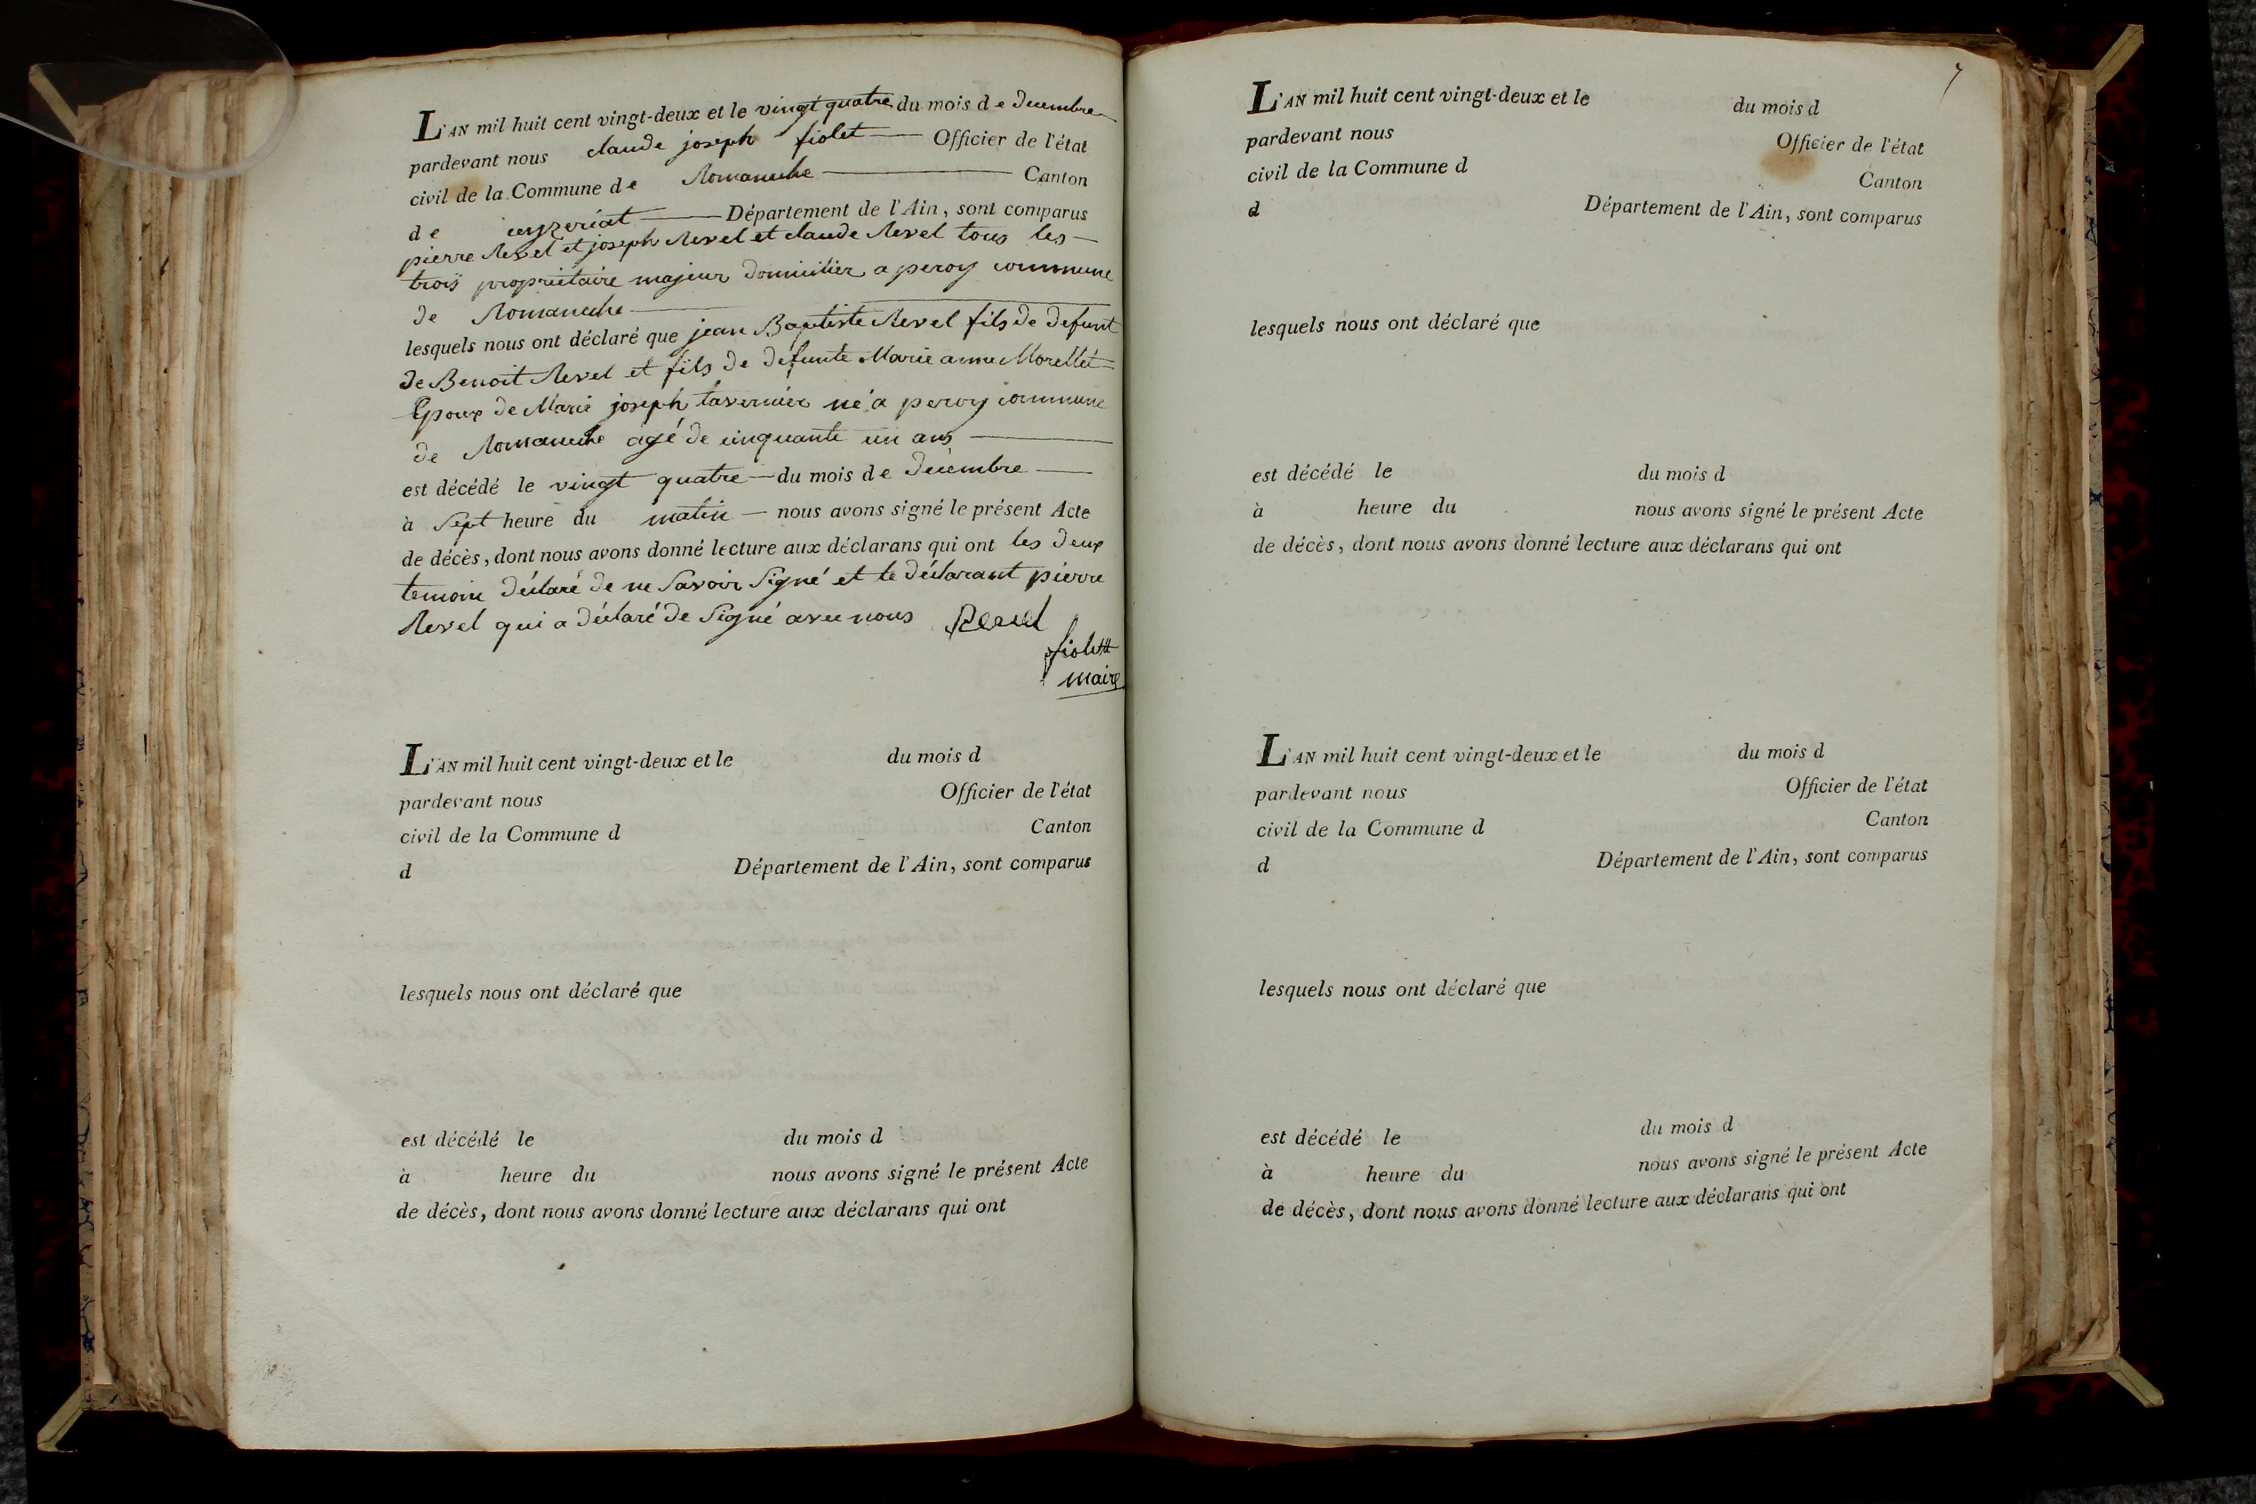 L'AN mil huit cent vingt-deux et le vingt quatre du mois de decembre
pardevant nous claude joseph fiolet Officier de l'état
civil de la Commune de Romaneche Canton
de ceyzeriat Département de l'Ain, sont comparus
pierre Revel et joseph Revel et claude Revel tous les
trois proprietaire majeur domicilier a peroy commune
de Romaneche
lesquels nous ont déclaré que jean Baptiste Revel fils de defunt
de Benoit Revel et fils de défunte Marie anne Morellet
Epoux de Marie joseph tavernier né a peroy commune
de Romaneche agé de cinquante un ans
est décédé le vingt quatre du mois de décembre
à Sept heure du matin nous avons signé le présent Acte
de décès, dont nous avons donné lecture aux déclarans qui ont les deux
temoin déclaré de ne Savoir Signé et le déclarant pierre
Revel qui a déclaré de Signé avec nous Revel
fiolet
maire
L'AN mil huit cent vingt-deux et le du mois d
pardevant nous Officier de l'état
civil de la Commune d Canton
d Département de l'Ain, sont comparus
lesquels nous ont déclaré que
est décédé le du mois d
à heure du nous avons signé le présent Acte
de décès, dont nous avons donné lecture aux déclarans qui ont
7
L'AN mil huit cent vingt-deux et le du mois d
pardevant nous Officier de l'état
civil de la Commune d Canton
d Département de l'Ain, sont comparus
lesquels nous ont déclaré que
est décédé le du mois d
à heure du nous avons signé le présent Acte
de décès, dont nous avons donné lecture aux déclarans qui ont
L'AN mil huit cent vingt-deux et le du mois d
pardevant nous Officier de l'état
civil de la Commune d Canton
d Département de l'Ain, sont comparus
lesquels nous ont déclaré que
est décédé le du mois d
à heure du nous avons signé le présent Acte
de décès, dont nous avons donné lecture aux déclarans qui ont